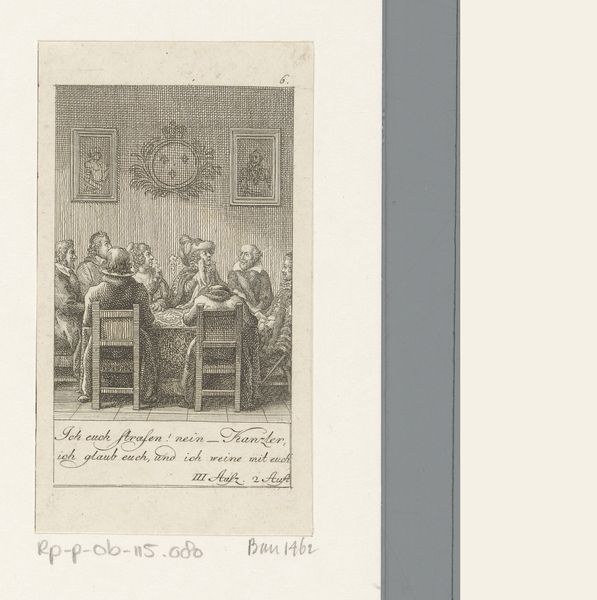 6.
Ich euch strafen! nein — Kanzler,
ich glaub euch, und ich weine mit euch
III Aufz. 2 Auft
RP-P-OB-115.080
Bau 1462